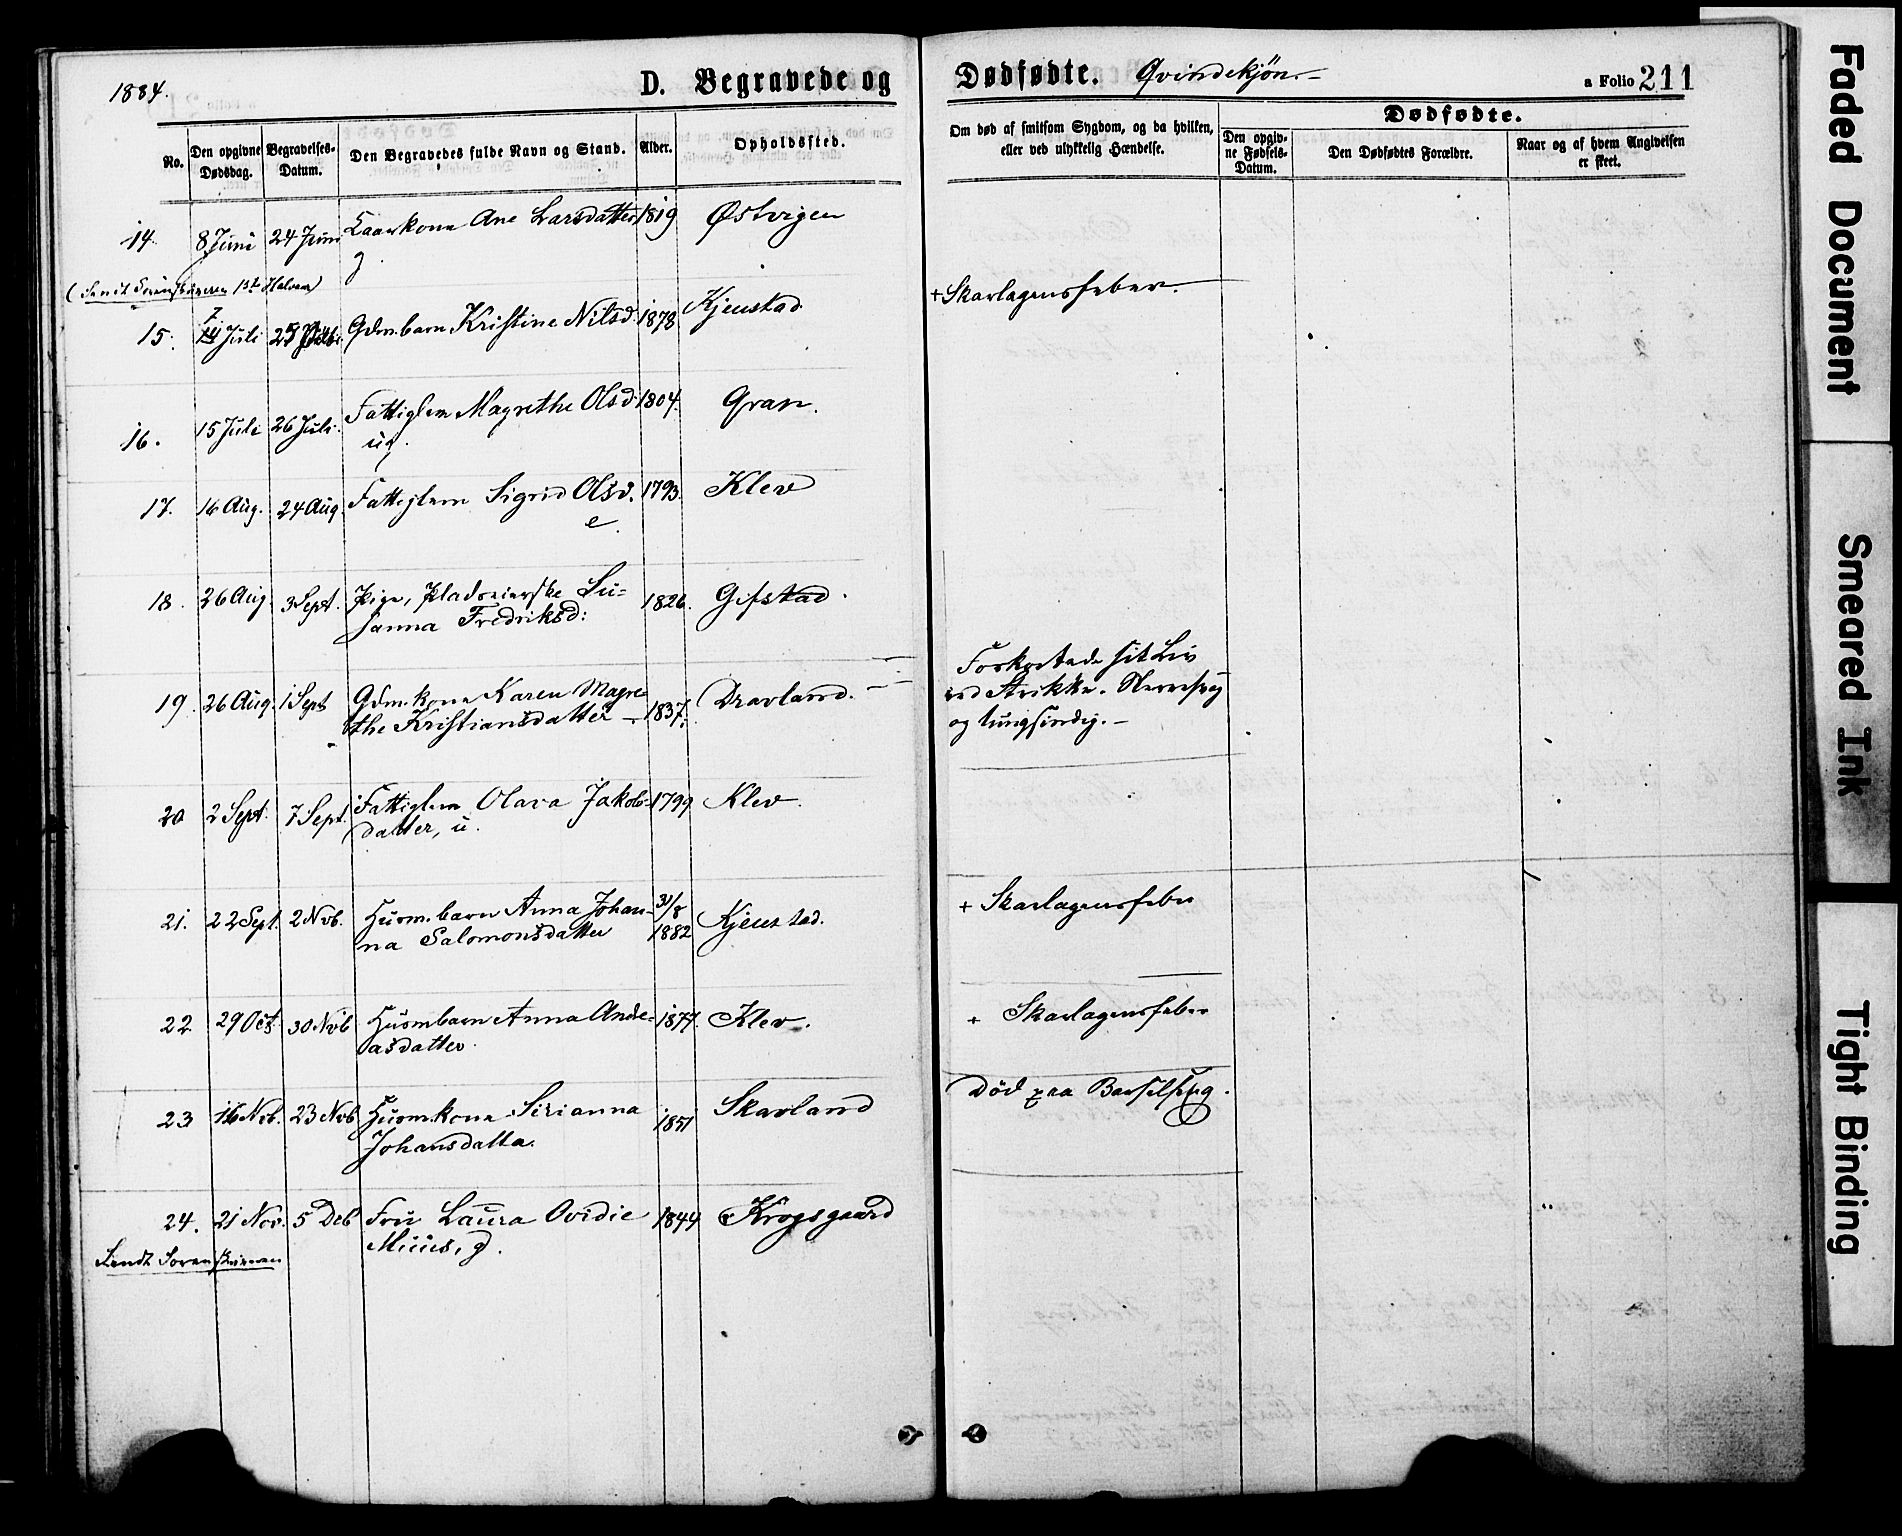 1884.
D. Begravede og Dødfødte. Qvindekjøn.
a Folio 211
No.
Den opgivne Dødsdag.
Begravelses-Datum.
Den Begravedes fulde Navn og Stand.
Alder.
Opholdssted.
Om død af smitsom Sygdom, og da hvilken,
eller ved ulykkelig Hændelse.
Dødfødte.
Den opgiv-
ne Fødsels-
Datum.
Den Dødfødtes Forældre.
Naar og af hvem Angivelsen
er skeet.
14. 8 Juni 24 Juni Kaarkone Ane Larsdatter 1819 Østvigen
g.
(Sendt Sorenskriveren 1st Halvaar)
15. 7 Juli 25 Gdm.barn Kristine Nilsd. 1878 Kjenstad + Skarlagensfeber.
16. 15 Juli 26 Juli. Fattiglem Magrethe Olsd. 1804. Gran.
ug.
17. 16 Aug. 24 Aug. Fattiglem Sigrid Olsd. 1793. Klev
e.
18. 26 Aug. 3 Sept. Pige, Su-
sanna Fredriksd: 1826. Gifstad.
19. 26 Aug. 1 Sept Gdm.kone Karen Magre-
the Kristiansdatter 1837. Dravland.
Forkortede sit Liv
ved Strikke. Nervesvag
og tungsindig.
20 2 Sept. 7 Sept. Fattiglem Olava Jakobs- 1799 Klev.
datter, u.
21. 22 Sept. 2 Nvb. Husm.barn Anna Johan- 31/8
na Salomonsdatter 1882 Kjenstad. + Skarlagensfeber
22 29 Oct. 30 Nvb Husmbarn Anna Andre- 1877. Klev. + Skarlagensfeber
asdatter.
23 16 Nvb. 23 Nvb Husm.kone Sirianna 1851 Skavland Død paa Barselseng.
Johansdatter.
24. 21 Nov. 5 Deb Fru Laura Ovidie 1844 Krogsgaard
Muus, g.
Sendt Sorenskriveren
Faded Document
Smeared Ink
Tight Binding